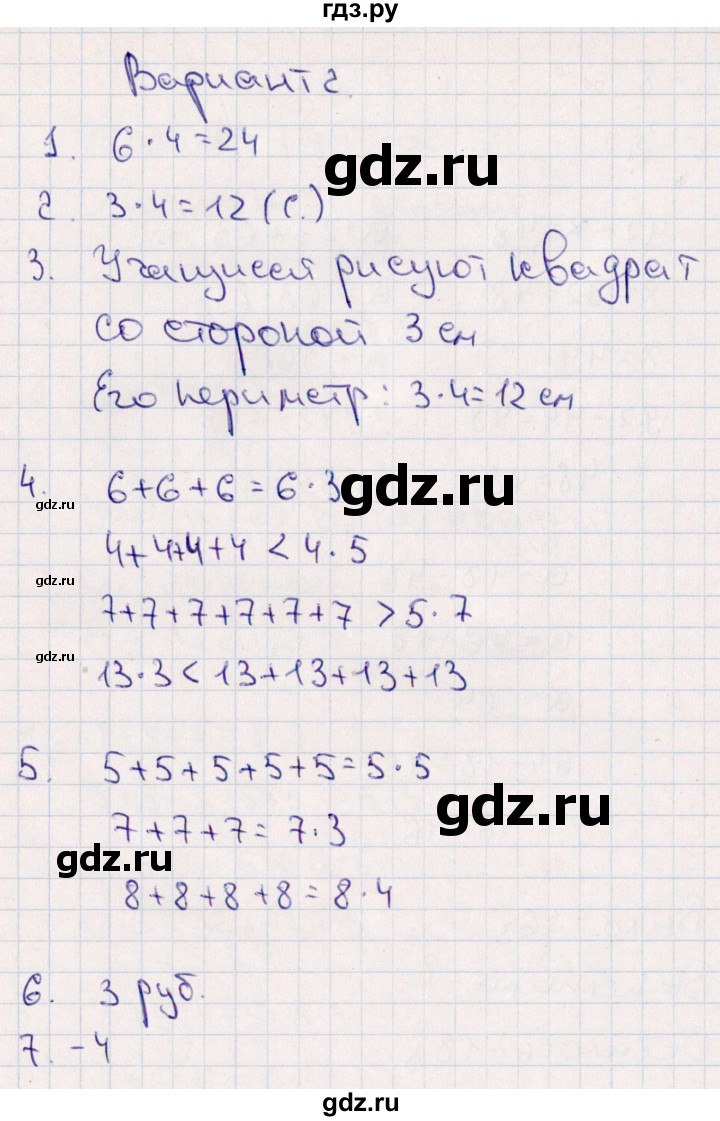 гдз.ру
Вариант 2.
1. 6·4=24
gdz.ru
2. 3·4=12 (с.)
3. Учащиеся рисуют квадрат
со стороной 3 см
Его периметр: 3·4=12 см
4. 6+6+6=6·3
gdz.ru
gdz.ru
4+4+4+4<4·5
gdz.ru
7+7+7+7+7+7>5·7
gdz.ru
13·3<13+13+13+13
5. 5+5+5+5+5=5·5
gdz.ru
7+7+7=7·3
gdz.ru
8+8+8+8=8·4
6. 3 руб.
7. -4
gdz.ru